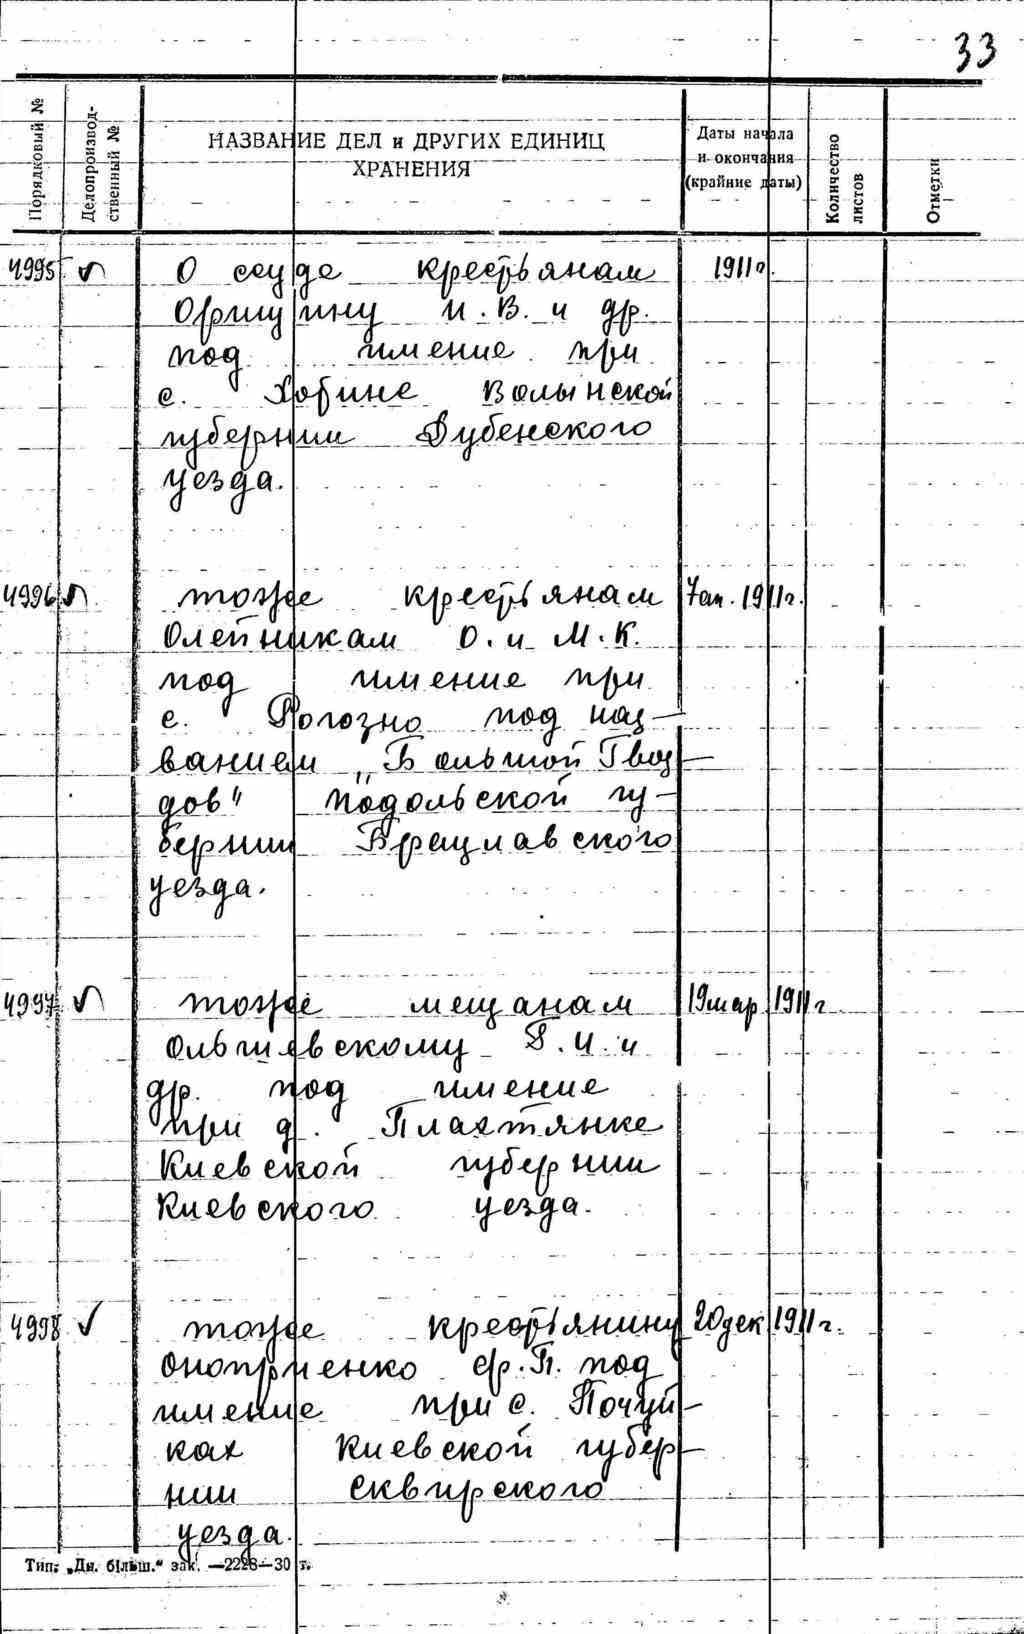 33
Порядковый №
Делопроизвод-
ственный №
НАЗВАНИЕ ДЕЛ и ДРУГИХ ЕДИНИЦ
ХРАНЕНИЯ
Даты начала
и окончания
(крайние даты)
Количество
листов
Отметки
4995 О ссуде крестьянам 1911г.
И.В. и др.
под имение при
с. Волынской
губернии Дубенского
уезда.
4996 тоже крестьянам 7 ап. 1911г.
Олейникам О. и М.К.
под имение при
с. Рогозно под наз-
ванием „Большой Гвоз-
дов" Подольской гу-
бернии Брацлавского
уезда.
4997 тоже мещанам 19 мар 1911г
Ольшевскому И. и
др. под имение
при д. Пластянке
Киевской губернии
Киевского уезда.
4998 тоже крестьянину 20 дек 1911г.
Оноприенко Ф.П. под
имение при с. Почуй-
ках Киевской губер-
нии Сквирского
уезда.
Тип. „Дн. більш." зак. —2228—30 г.